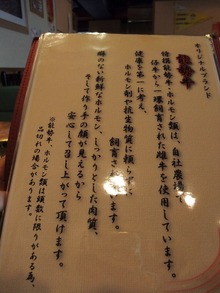 オリジナルブランド
龍勢牛
特撰龍勢牛・ホルモン類は、自社農場で
仔牛から一環飼育された雄牛を使用しています。
健康を第一に考え、
ホルモン剤や抗生物質に頼らずに
飼育されています。
癖のない新鮮なホルモン、しっかりとした肉質、
そして作り手の顔が見えるから
安心して召し上がって頂けます。
※龍勢牛、ホルモン類は頭数に限りがある為、
品切れの場合があります。